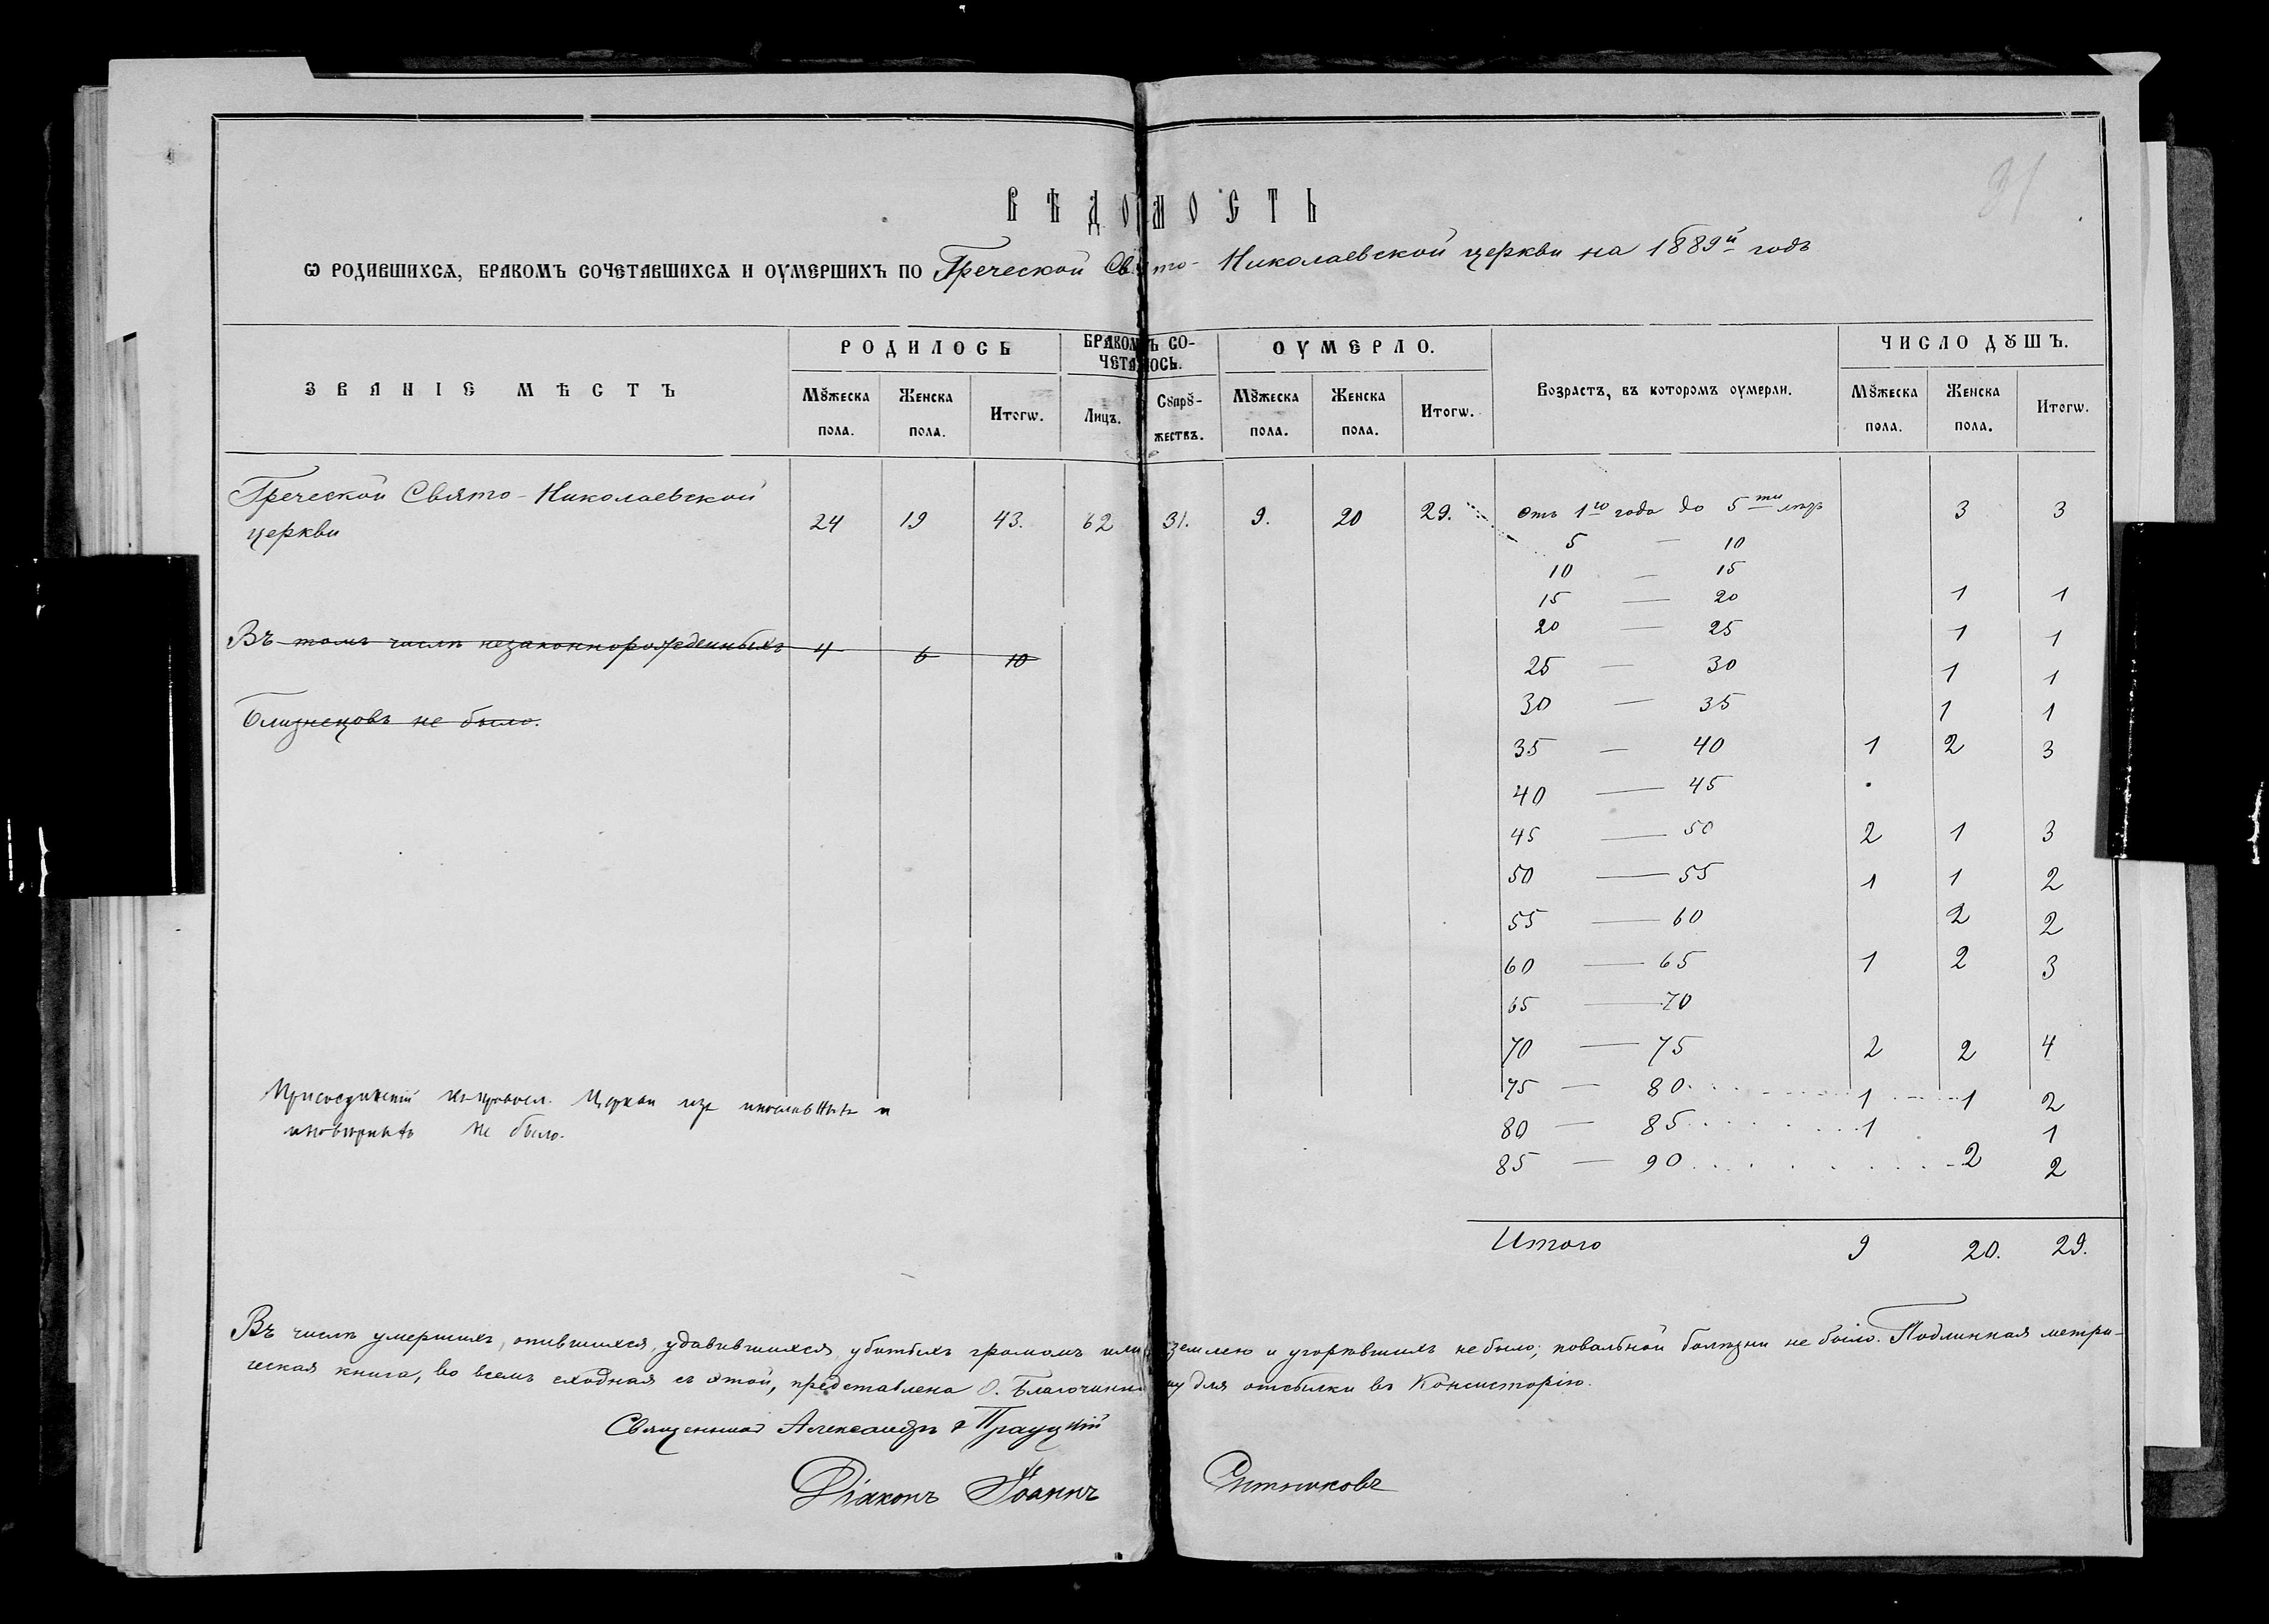 31
ВѢДОМОСТЬ
Ѡ РОДИВШИХСѦ, БРАКОМЪ СОЧЕТАВШИХСѦ И ОУМЕРШИХЪ ПО Греческой Свято-Николаевской церкви на 1889й годъ
ЗВАНІЕ МѢСТЪ
РОДИЛОСЬ
БРАКОМЪ СО-
ЧЕТАЛОСЬ.
ОУМЕРЛО.
Возрастъ, въ которомъ оумерли.
ЧИСЛО ДꙊШЪ.
Мꙋжеска пола. Женска пола. Итогѡ. Лицъ. Сꙋпрꙋ-жествъ. Мꙋжеска пола. Женска пола. Итогѡ. Мꙋжеска пола. Женска пола. Итогѡ.
Греческой Свято-Николаевской
церкви 24 19 43. 62 31. 9. 20 29. Отъ 1го года до 5ти лѣтъ 3 3
5 — 10
10 — 15
15 — 20 1 1
20 — 25 1 1
Въ томъ числѣ незаконнорожденныхъ 4 6 10
25 — 30 1 1
30 — 35 1 1
Близнецовъ не было.
35 — 40 1 2 3
40 — 45
45 — 50 2 1 3
50 — 55 1 1 2
55 — 60 2 2
60 — 65 1 2 3
65 — 70
70 — 75 2 2 4
75 — 80 1 1 2
80 — 85 1 1
85 — 90 2 2
Присоединеній къ правосл. Церкви изъ инославныхъ и
иновѣрныхъ не было.
Итого 9 20. 29.
Въ числѣ умершихъ, опившихся, удавившихся, убитыхъ громомъ или землею и угорѣвшихъ не было; повальной болѣзни не было. Подлинная метри-
ческая книга, во всемъ сходная съ этой, представлена О. Благочинному для отсылки въ Консисторію.
Священникъ Александръ
Діаконъ Іоаннъ